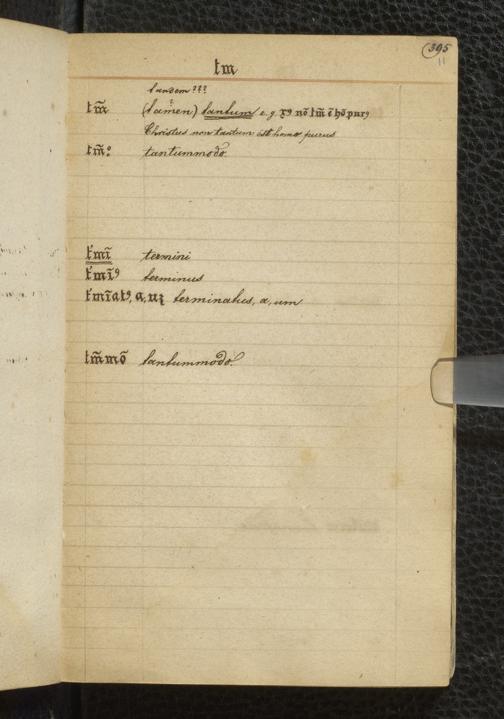 395
11
tm
tandem???
tm̄ (tamen)? tantum e.g. xꝰ nō tm̄ ē hō purꝰ
Christus non tantum est homo purus
tm̄o tantummodo.
t'mī termini
t'mīꝰ terminus
t'mīatꝰ, a, uꝫ terminatus, a, um
tm̄mō tantummodo.